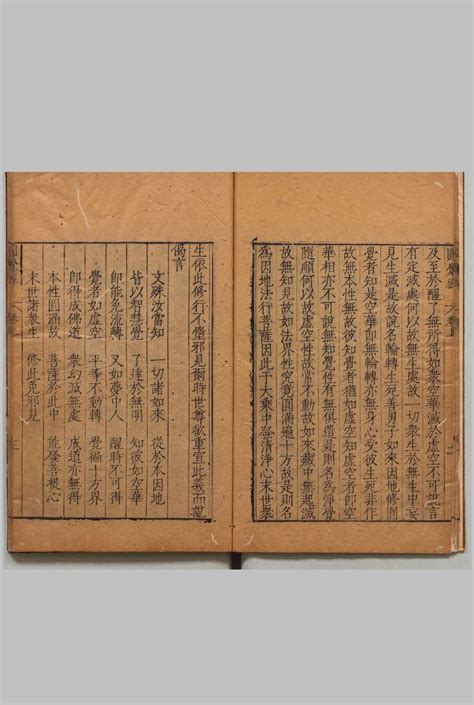 及至於醒了無所得如衆空華滅於虛空不可說言
有定滅處何以故無生處故一切衆生於無生中妄
見生滅是故說名輪轉生死善男子如來因地修圓
覺者知是空華即無輪轉亦無身心受彼生死非作
故無本性無故彼知覺者猶如虛空知虛空者即空
華相亦不可說無知覺性有無俱遣是則名爲淨覺
隨順何以故虛空性故常不動故如來藏中無起滅
故無知見故如法界性究竟圓滿徧十方故是則名
爲因地法行菩薩因此於大乘中發清淨心末世衆
生依此修行不墮邪見爾時世尊欲重宣此義而說
偈言
文殊汝當知 一切諸如來 從於本因地
皆以智慧覺 了達於無明 知彼如空華
即能免流轉 又如夢中人 醒時不可得
覺者如虛空 平等不動轉 覺徧十方界
即得成佛道 衆幻滅無處 成道亦無得
本性圓滿故 菩薩於此中 能發菩提心
末世諸衆生 修此免邪見